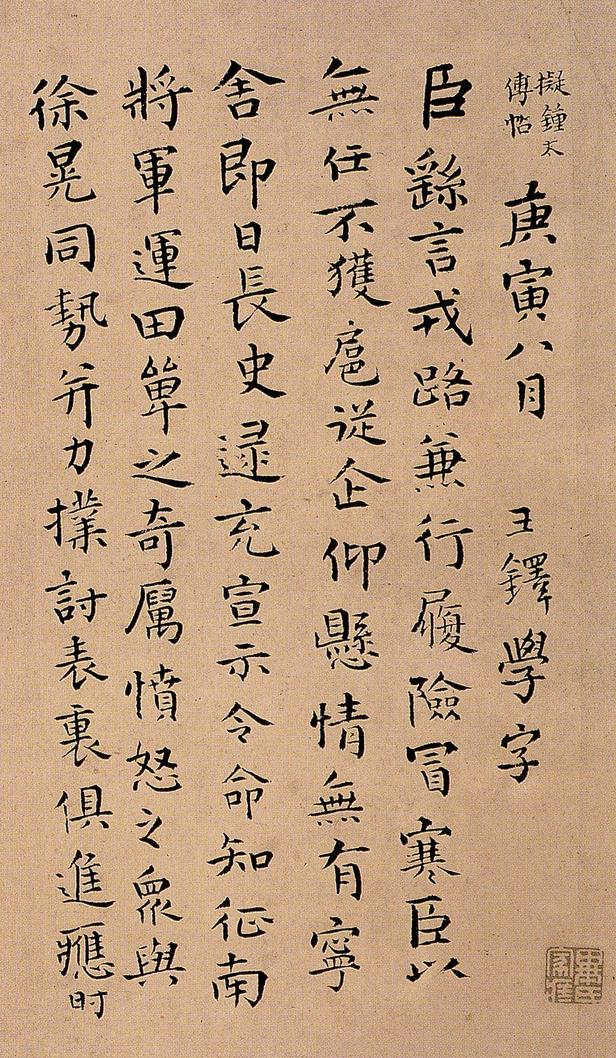 擬鍾太
傅帖
庚寅八月 王鐸學字
臣繇言戎路兼行履險冒寒臣以
無任不獲扈從企仰懸情無有寧
舍即日長史逯充宣示令命知征南
將軍運田單之奇厲憤怒之眾與
徐晃同勢并力撲討表裏俱進應時